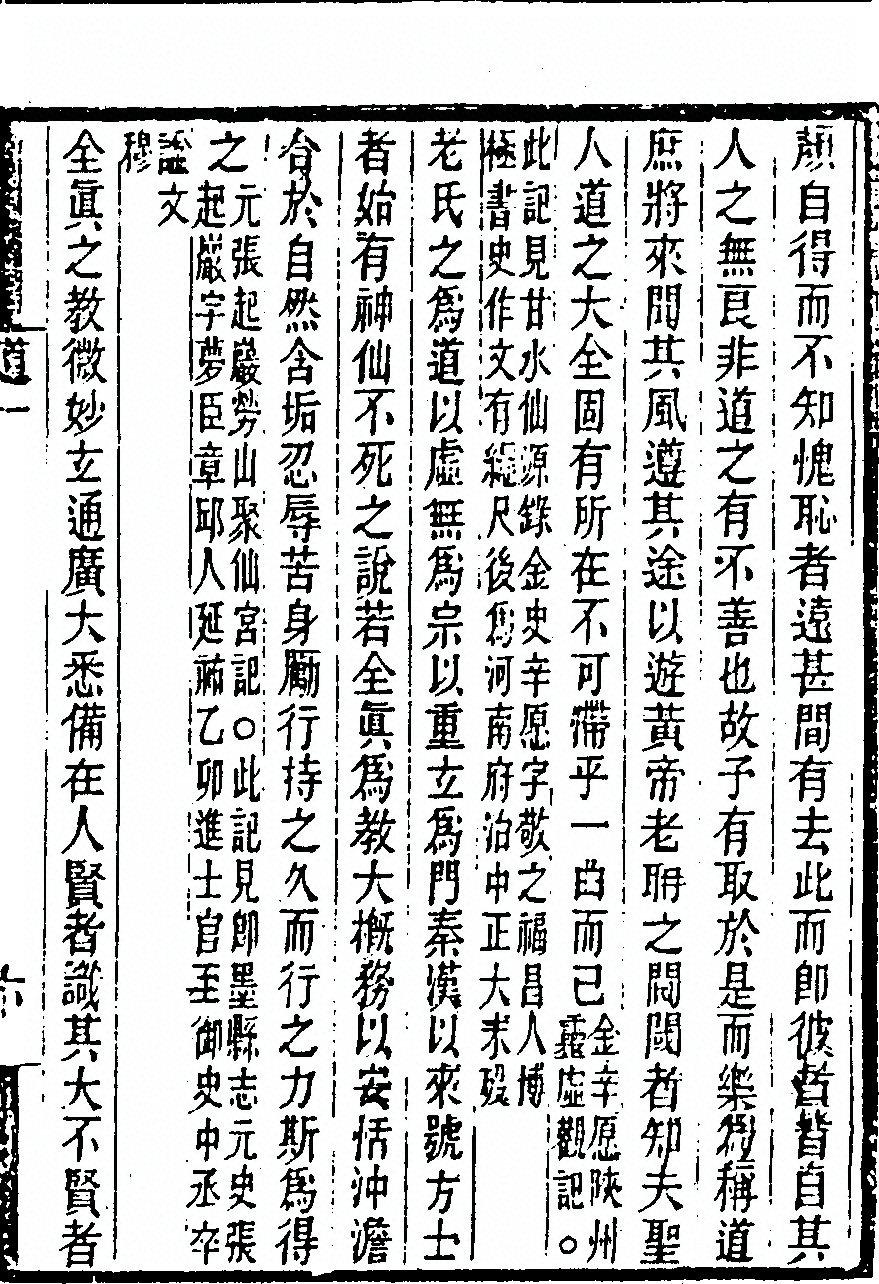 顏自得而不知愧恥者遠甚間有去此而即彼者皆自其
人之無良非道之有不善也故予有取於是而樂爲稱道
庶將來聞其風遵其途以遊黃帝老耼之閫閾者知夫聖
人道之大全固有所在不可滯乎一曲而已金辛愿陝州
靈虛觀記○
此記見甘水仙源錄金史辛愿字敬之福昌人博
極書史作文有繩尺後爲河南府治中正大末歿
老氏之爲道以虛無爲宗以重玄爲門秦漢以來號方士
者始有神仙不死之說若全眞爲教大槪務以安恬沖澹
合於自然含垢忍辱苦身勵行持之久而行之力斯爲得
之元張起巖勞山聚仙宮記○此記見即墨縣志元史張
起巖字夢臣章邱人延祐乙卯進士官至御史中丞卒
諡文
穆
全眞之教微妙玄通廣大悉備在人賢者識其大不賢者
道一
六